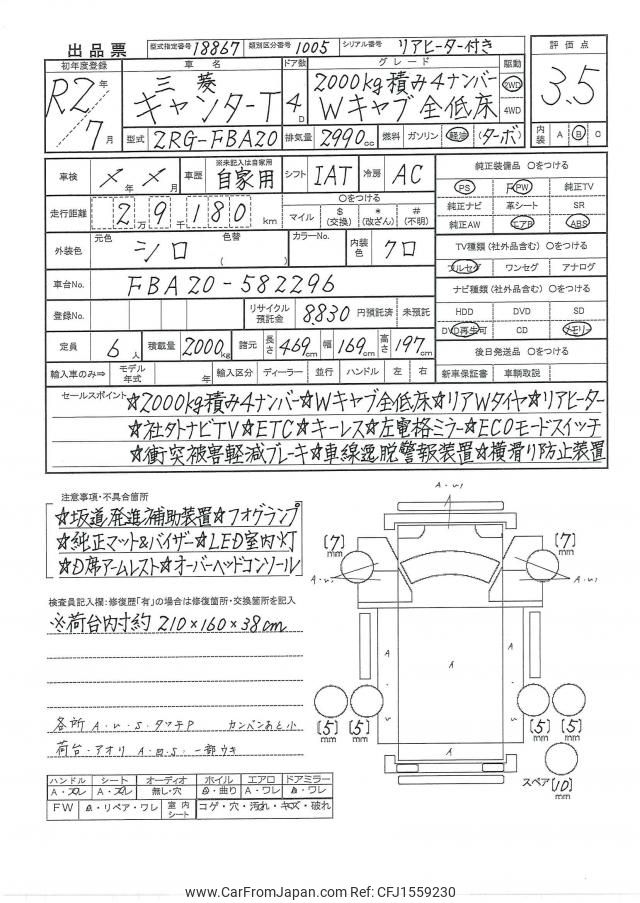 出品票 型式指定番号 18867 類別区分番号 1005 シリアル番号 リアヒーター付き
初年度登録 車名 ドア数 グレード 駆動 評価点
R2年 7月 三菱 キャンターT 4D 2000kg積み4ナンバー Wキャブ全低床 2WD 4WD 3.5
型式 2RG-FBA20 排気量 2990cc 燃料 ガソリン 軽油 (ターボ) 内装 A B C
車検 X年 X月 車歴 ※未記入は自家用 自家用 シフト IAT 冷房 AC
走行距離 2万9千180km マイル ○をつける $(交換) *(改ざん) #(不明)
外装色 元色 シロ 色替 ( ) カラーNo. 内装色 クロ
車台No. FBA20-582296
登録No. リサイクル預託金 8,830 円預託済 未預託
定員 6人 積載量 2000kg 諸元 長さ 469cm 幅 169cm 高さ 197cm
輸入車のみ⇒ モデル年式 年 輸入区分 ディーラー 並行 ハンドル 左 右
純正装備品 ○をつける
PS PW 純正TV
純正ナビ 革シート SR
純正AW エアB ABS
TV種類(社外品含む) ○をつける
フルセグ ワンセグ アナログ
ナビ種類(社外品含む) ○をつける
HDD DVD SD
DVD再生可 CD メモリー
後日発送品 ○をつける
新車保証書 車輌取説
セールスポイント ☆2000kg積み4ナンバー☆Wキャブ全低床☆リアWタイヤ☆リアヒーター
☆社外ナビTV☆ETC☆キーレス☆左電格ミラー☆ECOモードスイッチ
☆衝突被害軽減ブレーキ☆車線逸脱警報装置☆横滑り防止装置
注意事項・不具合箇所
☆坂道発進補助装置☆フォグランプ
☆純正マット&バイザー☆LED室内灯
☆D席アームレスト☆オーバーヘッドコンソール
検査員記入欄:修復歴「有」の場合は修復箇所・交換箇所を記入
※荷台内寸約210×160×38cm
各所 A・U・S・タッチP カンバンあと小
荷台・アオリ A・U・S・一部ウキ
ハンドル シート オーディオ ホイル エアロ ドアミラー
A・スレ A・スレ 無し・穴 曲り A・ワレ ワレ
FW リペア・ワレ 室内シート コゲ・穴・汚れ・キズ・破れ
A・U1
[7]mm [7]mm
A・U1 A・U1
A A A
[5]mm [5]mm [5]mm [5]mm
A
スペア[10]mm
www.CarFromJapan.com Ref: CFJ1559230